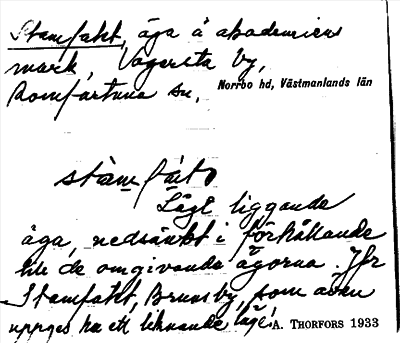 Stamfakt, äga å akademiens
mark, Vagersta by,
Romfartuna sn,
Norrbo hd, Västmanlands län
Lågt liggande
äga, nedsänkt i förhållande
till de omgivande ägorna. Jfr
Stamfakt, Brunsby, som även
uppges ha ett liknande läge.
A. THORFORS 1933